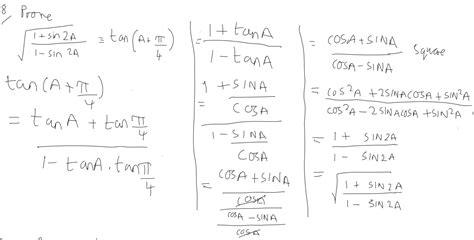 8 Prove
√(1+sin 2A / 1-sin 2A) ≡ tan(A+π/4)
tan(A+π/4)
= tanA + tan π/4 / 1-tanA.tan π/4
= 1+tanA / 1-tanA
= 1 + SINA/COSA / 1 - SINA/COSA
= COSA+SINA / COSA / COSA-SINA / COSA
= COSA+SINA / COSA-SINA Square
= COS²A + 2SINACOSA + SIN²A / COS²A - 2SINACOSA + SIN²A
= 1 + SIN2A / 1 - SIN2A
= √(1 + SIN2A / 1 - SIN2A)